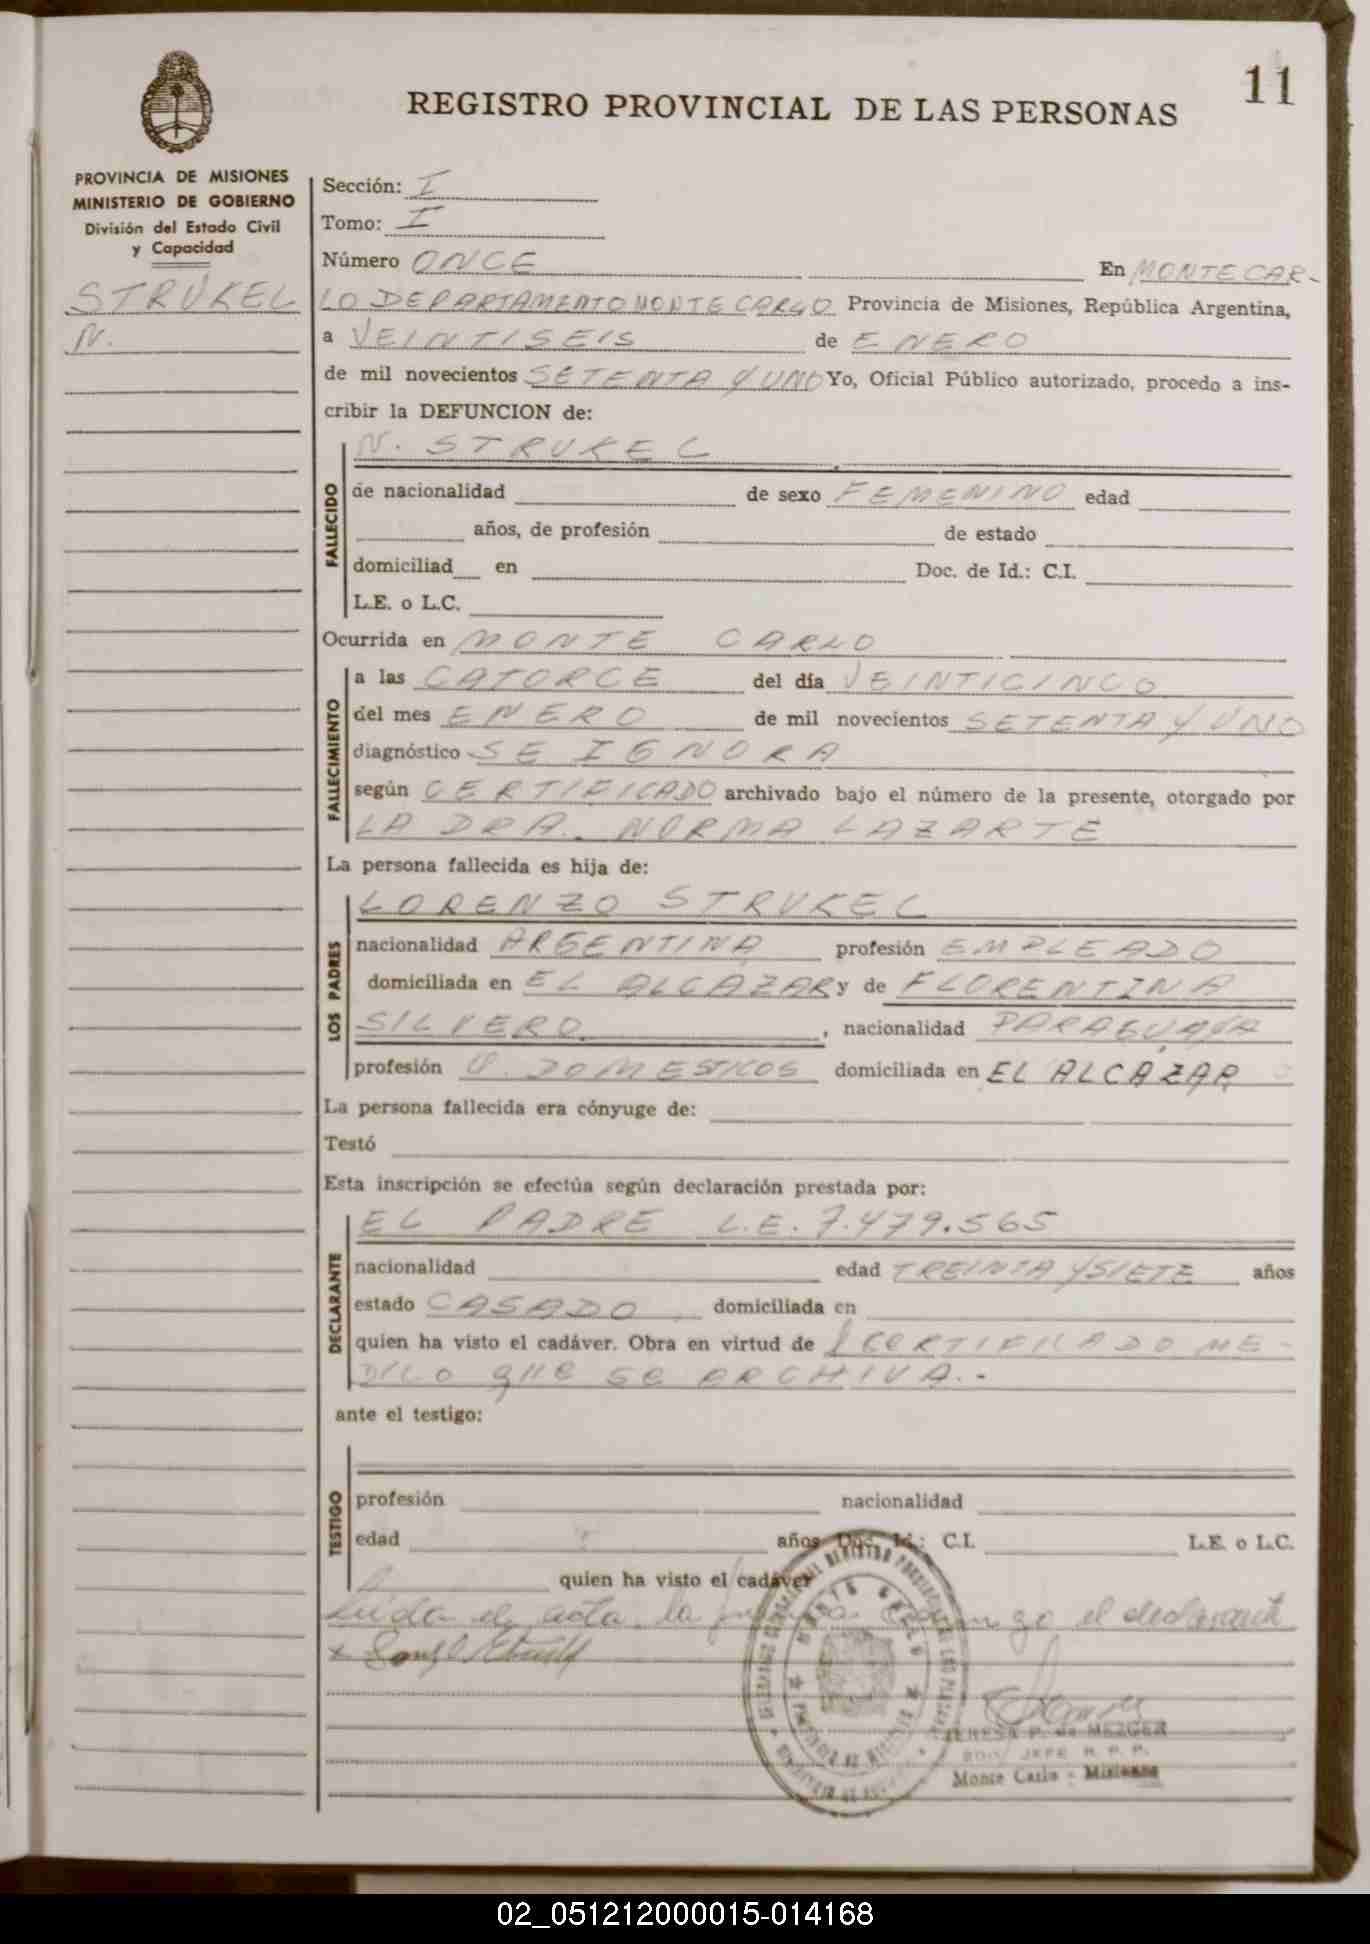 11
REGISTRO PROVINCIAL DE LAS PERSONAS
PROVINCIA DE MISIONES
MINISTERIO DE GOBIERNO
División del Estado Civil
y Capacidad
STRUKEL
N.
Sección: I
Tomo: I
Número ONCE En MONTE CAR-
LO DEPARTAMENTO MONTE CARLO Provincia de Misiones, República Argentina,
a VEINTISEIS de ENERO
de mil novecientos SETENTA Y UNO Yo, Oficial Público autorizado, procedo a ins-
cribir la DEFUNCION de:
FALLECIDO
N. STRUKEL
de nacionalidad de sexo FEMENINO edad
años, de profesión de estado
domiciliad en Doc. de Id.: C.I.
L.E. o L.C.
Ocurrida en MONTE CARLO
FALLECIMIENTO
a las CATORCE del día VEINTICINCO
del mes ENERO de mil novecientos SETENTA Y UNO
diagnóstico SE IGNORA
según CERTIFICADO archivado bajo el número de la presente, otorgado por
LA DRA. NORMA LAZARTE
La persona fallecida es hija de:
LOS PADRES
LORENZO STRUKEL
nacionalidad ARGENTINA profesión EMPLEADO
domiciliada en EL ALCAZAR y de FLORENTINA
SILVERO, nacionalidad PARAGUAYA
profesión Q. DOMESTICOS domiciliada en EL ALCAZAR
La persona fallecida era cónyuge de:
Testó
Esta inscripción se efectúa según declaración prestada por:
DECLARANTE
EL PADRE L.E. 7.479.565
nacionalidad edad TREINTA Y SIETE años
estado CASADO domiciliada en
quien ha visto el cadáver. Obra en virtud de CERTIFICADO ME-
DICO que se ARCHIVA.-
ante el testigo:
TESTIGO
profesión nacionalidad
edad años Doc. Id.: C.I. L.E. o L.C.
quien ha visto el cadáver
Leida el acta, la el declarante
TERESA P. de MEZGER
JEFE R. P. P.
Monte Carlo - Misiones
02_051212000015-014168